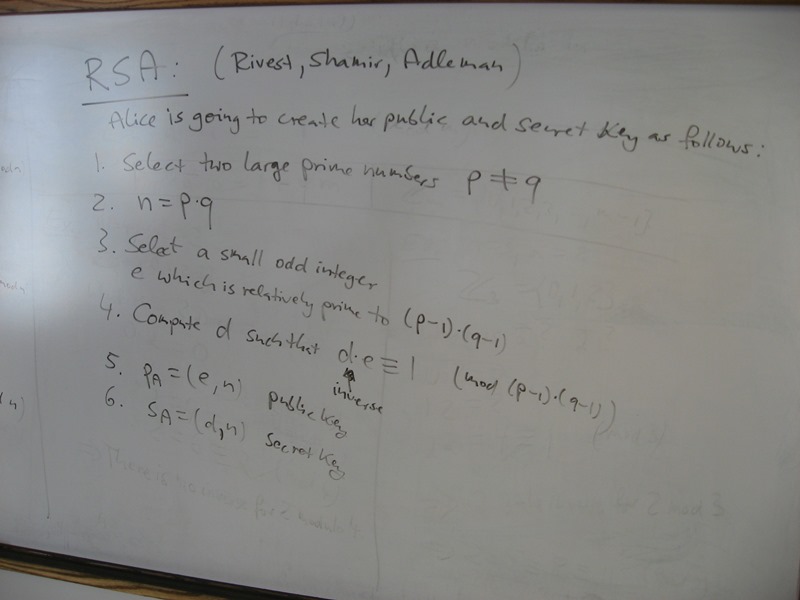 RSA: (Rivest, Shamir, Adleman)
Alice is going to create her public and secret key as follows:
1. Select two large prime numbers p ≠ q
2. n = p·q
3. Select a small odd integer
e which is relatively prime to (p-1)·(q-1)
4. Compute d such that d·e ≡ 1 (mod (p-1)·(q-1))
inverse
5. PA = (e, n) public key
6. SA = (d, n) secret key